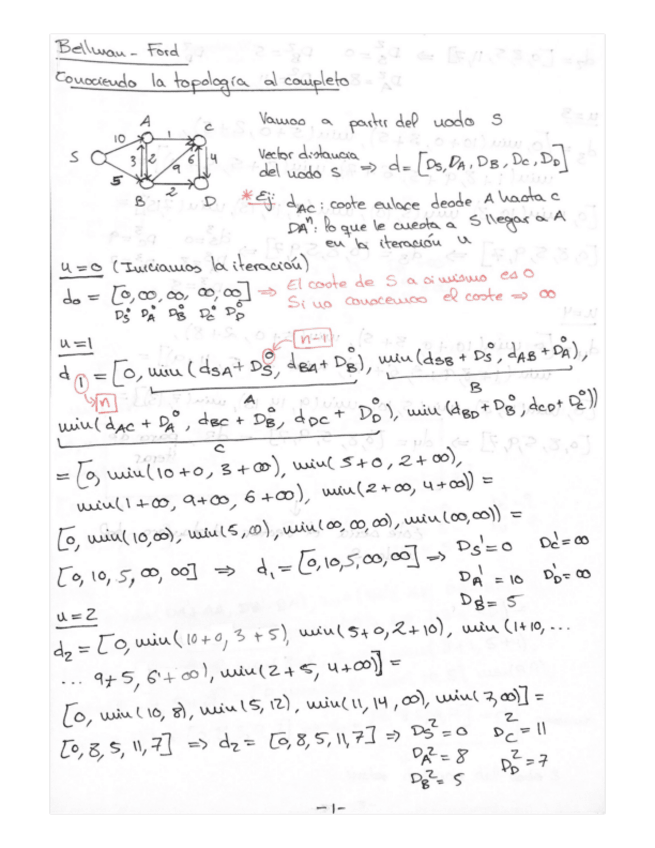 Bellman - Ford
Conociendo la topología al completo
Vamos a partir del nodo S
Vector distancia
del nodo S ⇒ d = [D_S, D_A, D_B, D_C, D_D]
A
C
S
B
D
10
1
3
2
9
6
4
5
2
* Ej: d_AC: coste enlace desde A hasta C
D_A^n: lo que le cuesta a S llegar a A
en la iteración n
n=0 (Iniciamos la iteración)
d_0 = [0, ∞, ∞, ∞, ∞] ⇒ El coste de S a si mismo es 0
D_S^0 D_A^0 D_B^0 D_C^0 D_D^0
Si no conocemos el coste ⇒ ∞
n=1
n-1
d_1 = [0, min(d_SA + D_S^0, d_BA + D_B^0), min(d_SB + D_S^0, d_AB + D_A^0),
n
A
B
min(d_AC + D_A^0, d_BC + D_B^0, d_DC + D_D^0), min(d_BD + D_B^0, d_CD + D_C^0)]
C
= [0, min(10+0, 3+∞), min(5+0, 2+∞),
min(1+∞, 9+∞, 6+∞), min(2+∞, 4+∞)] =
[0, min(10,∞), min(5,∞), min(∞,∞,∞), min(∞,∞)] =
[0, 10, 5, ∞, ∞] ⇒ d_1 = [0,10,5,∞,∞] ⇒ D_S^1 = 0 D_C^1 = ∞
D_A^1 = 10 D_D^1 = ∞
D_B^1 = 5
n=2
d_2 = [0, min(10+0, 3+5), min(5+0, 2+10), min(1+10, ...
... 9+5, 6+∞), min(2+5, 4+∞)] =
[0, min(10, 8), min(5, 12), min(11, 14, ∞), min(7,∞)] =
[0, 8, 5, 11, 7] ⇒ d_2 = [0,8,5,11,7] ⇒ D_S^2 = 0 D_C^2 = 11
D_A^2 = 8 D_D^2 = 7
D_B^2 = 5
-1-